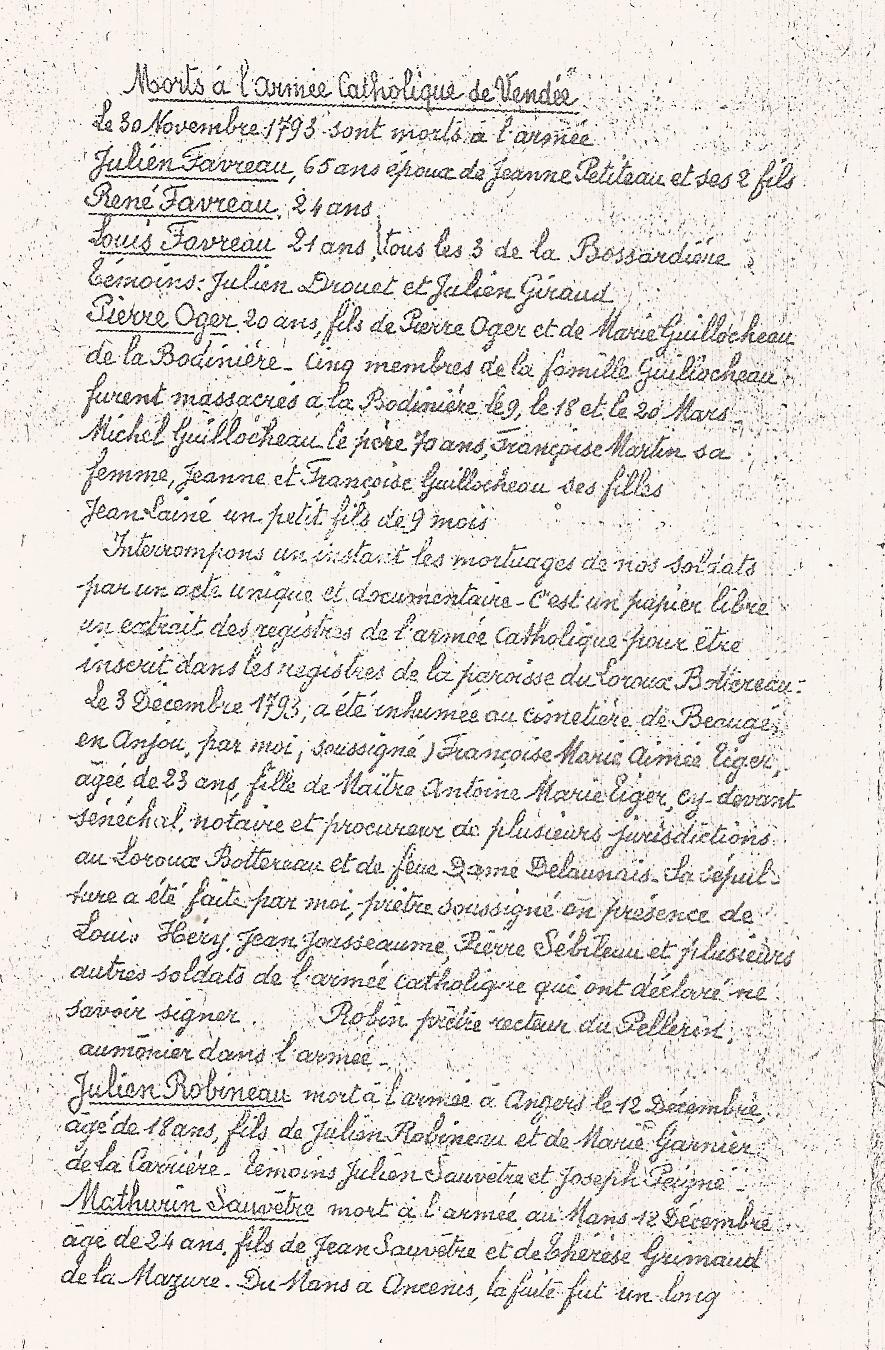 Morts à l'armée Catholique de Vendée"
Le 30 Novembre 1793 sont morts à l'armée
Julien Favreau, 65 ans époux de Jeanne Petiteau et ses 2 fils
René Favreau, 24 ans
Louis Favreau 21 ans, tous les 3 de la Bossardière
témoins: Julien Drouet et Julien Giraud
Pierre Oger 20 ans, fils de Pierre Oger et de Marie Guillocheau
de la Bodinière - Cinq membres de la famille Guillocheau
furent massacrés à la Bodinière le 9, le 18 et le 20 Mars
Michel Guillocheau le père 70 ans, Françoise Martin sa
femme, Jeanne et Françoise Guillocheau ses filles
Jean Lainé un petit fils de 9 mois
Interrompons un instant les mortuages de nos soldats
par un acte unique et documentaire - C'est un papier libre
un extrait des registres de l'armée catholique pour être
inscrit dans les registres de la paroisse du Loroux Bottereau:
Le 3 Décembre 1793, a été inhumée au cimetière de Beaugé,
en Anjou, par moi, soussigné) Françoise Marie Aimée Eiger,
âgée de 23 ans, fille de Maître Antoine Marie Eiger, cy-devant
sénéchal, notaire et procureur de plusieurs jurisdictions
au Loroux Bottereau et de feue Dame Delaunais - Sa sépul-
ture a été faite par moi, prêtre soussigné en présence de
Louis Héry, Jean Jousseaume, Pierre Sébileau et plusieurs
autres soldats de l'armée catholique qui ont déclaré ne
savoir signer Robin prêtre recteur du Pellerin,
aumônier dans l'armée -
Julien Robineau mort à l'armée à Angers le 12 Décembre,
âgé de 18 ans, fils de Julien Robineau et de Marie Garnier
de la Carrière - témoins Julien Sauvêtre et Joseph Peigné -
Mathurin Sauvêtre mort à l'armée au Mans 12 Décembre
âgé de 24 ans, fils de Jean Sauvêtre et de thérèse Grimaud
de la Mazure. Du Mans à Ancenis, la fuite fut un long